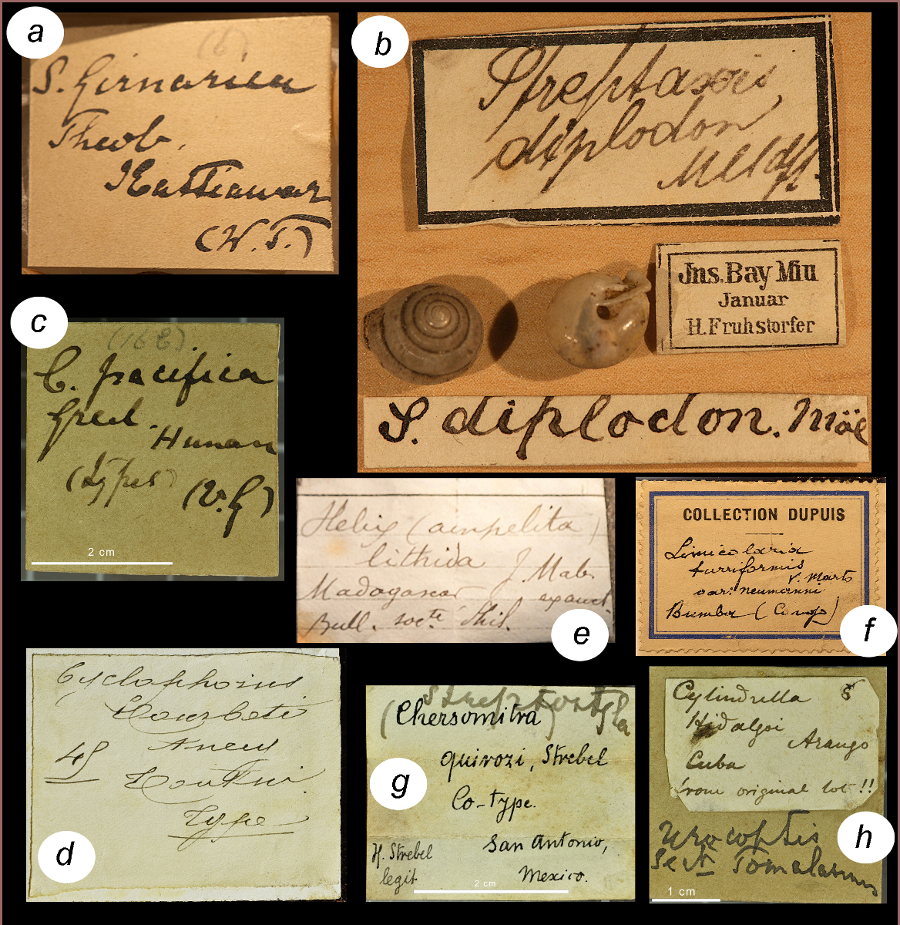 a
(6)
S. Girnarica
Theob.
Kattiawar
(W. T.)
b
Streptaxis
diplodon
Mlldff.
Jns. Bay Miu
Januar
H. Fruhstorfer
S. diplodon. Möl
c
(168)
C. pacifica
Gred.
Hunan
(types) (v. G)
2 cm
d
Cyclophorus
Courbeti
Ancey
45
Tonkin
Type
e
Helix (ampelita)
lithida J. Mab.
Madagascar exauct.
Bull. socte Phil.
f
COLLECTION DUPUIS
Limicolaria
turriformis
v. Marts
var. neumanni
Bumba (Congo)
g
Streptostyla
(Chersomitra)
quirozi, Strebel
Co-type.
San Antonio,
Mexico.
H. Strebel
legit
2 cm
h
Cylindrella 8
Hidalgoi
Arango
Cuba
from original lot!!
Urocoptis
Sectn Tomelasmus
1 cm